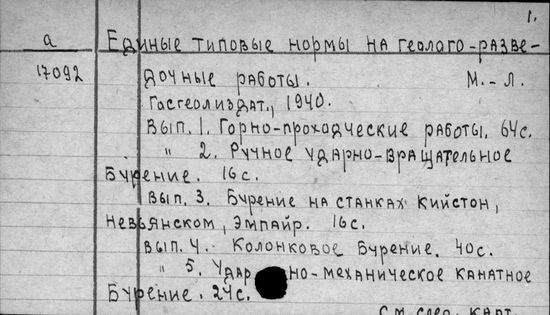 1.
а Единые типовые нормы на геолого-разве-
17092 дочные работы. М.-Л.
Госгеолиздат, 1940.
Вып. 1. Горно-проходческие работы. 64с.
" 2. Ручное ударно-вращательное
бурение. 16с.
Вып. 3. Бурение на станках Кийстон,
Невьянском, Эмпайр. 16с.
Вып. 4. Колонковое бурение. 40с.
" 5. Удар но-механическое канатное
бурение. 24с.
См. след. карт.